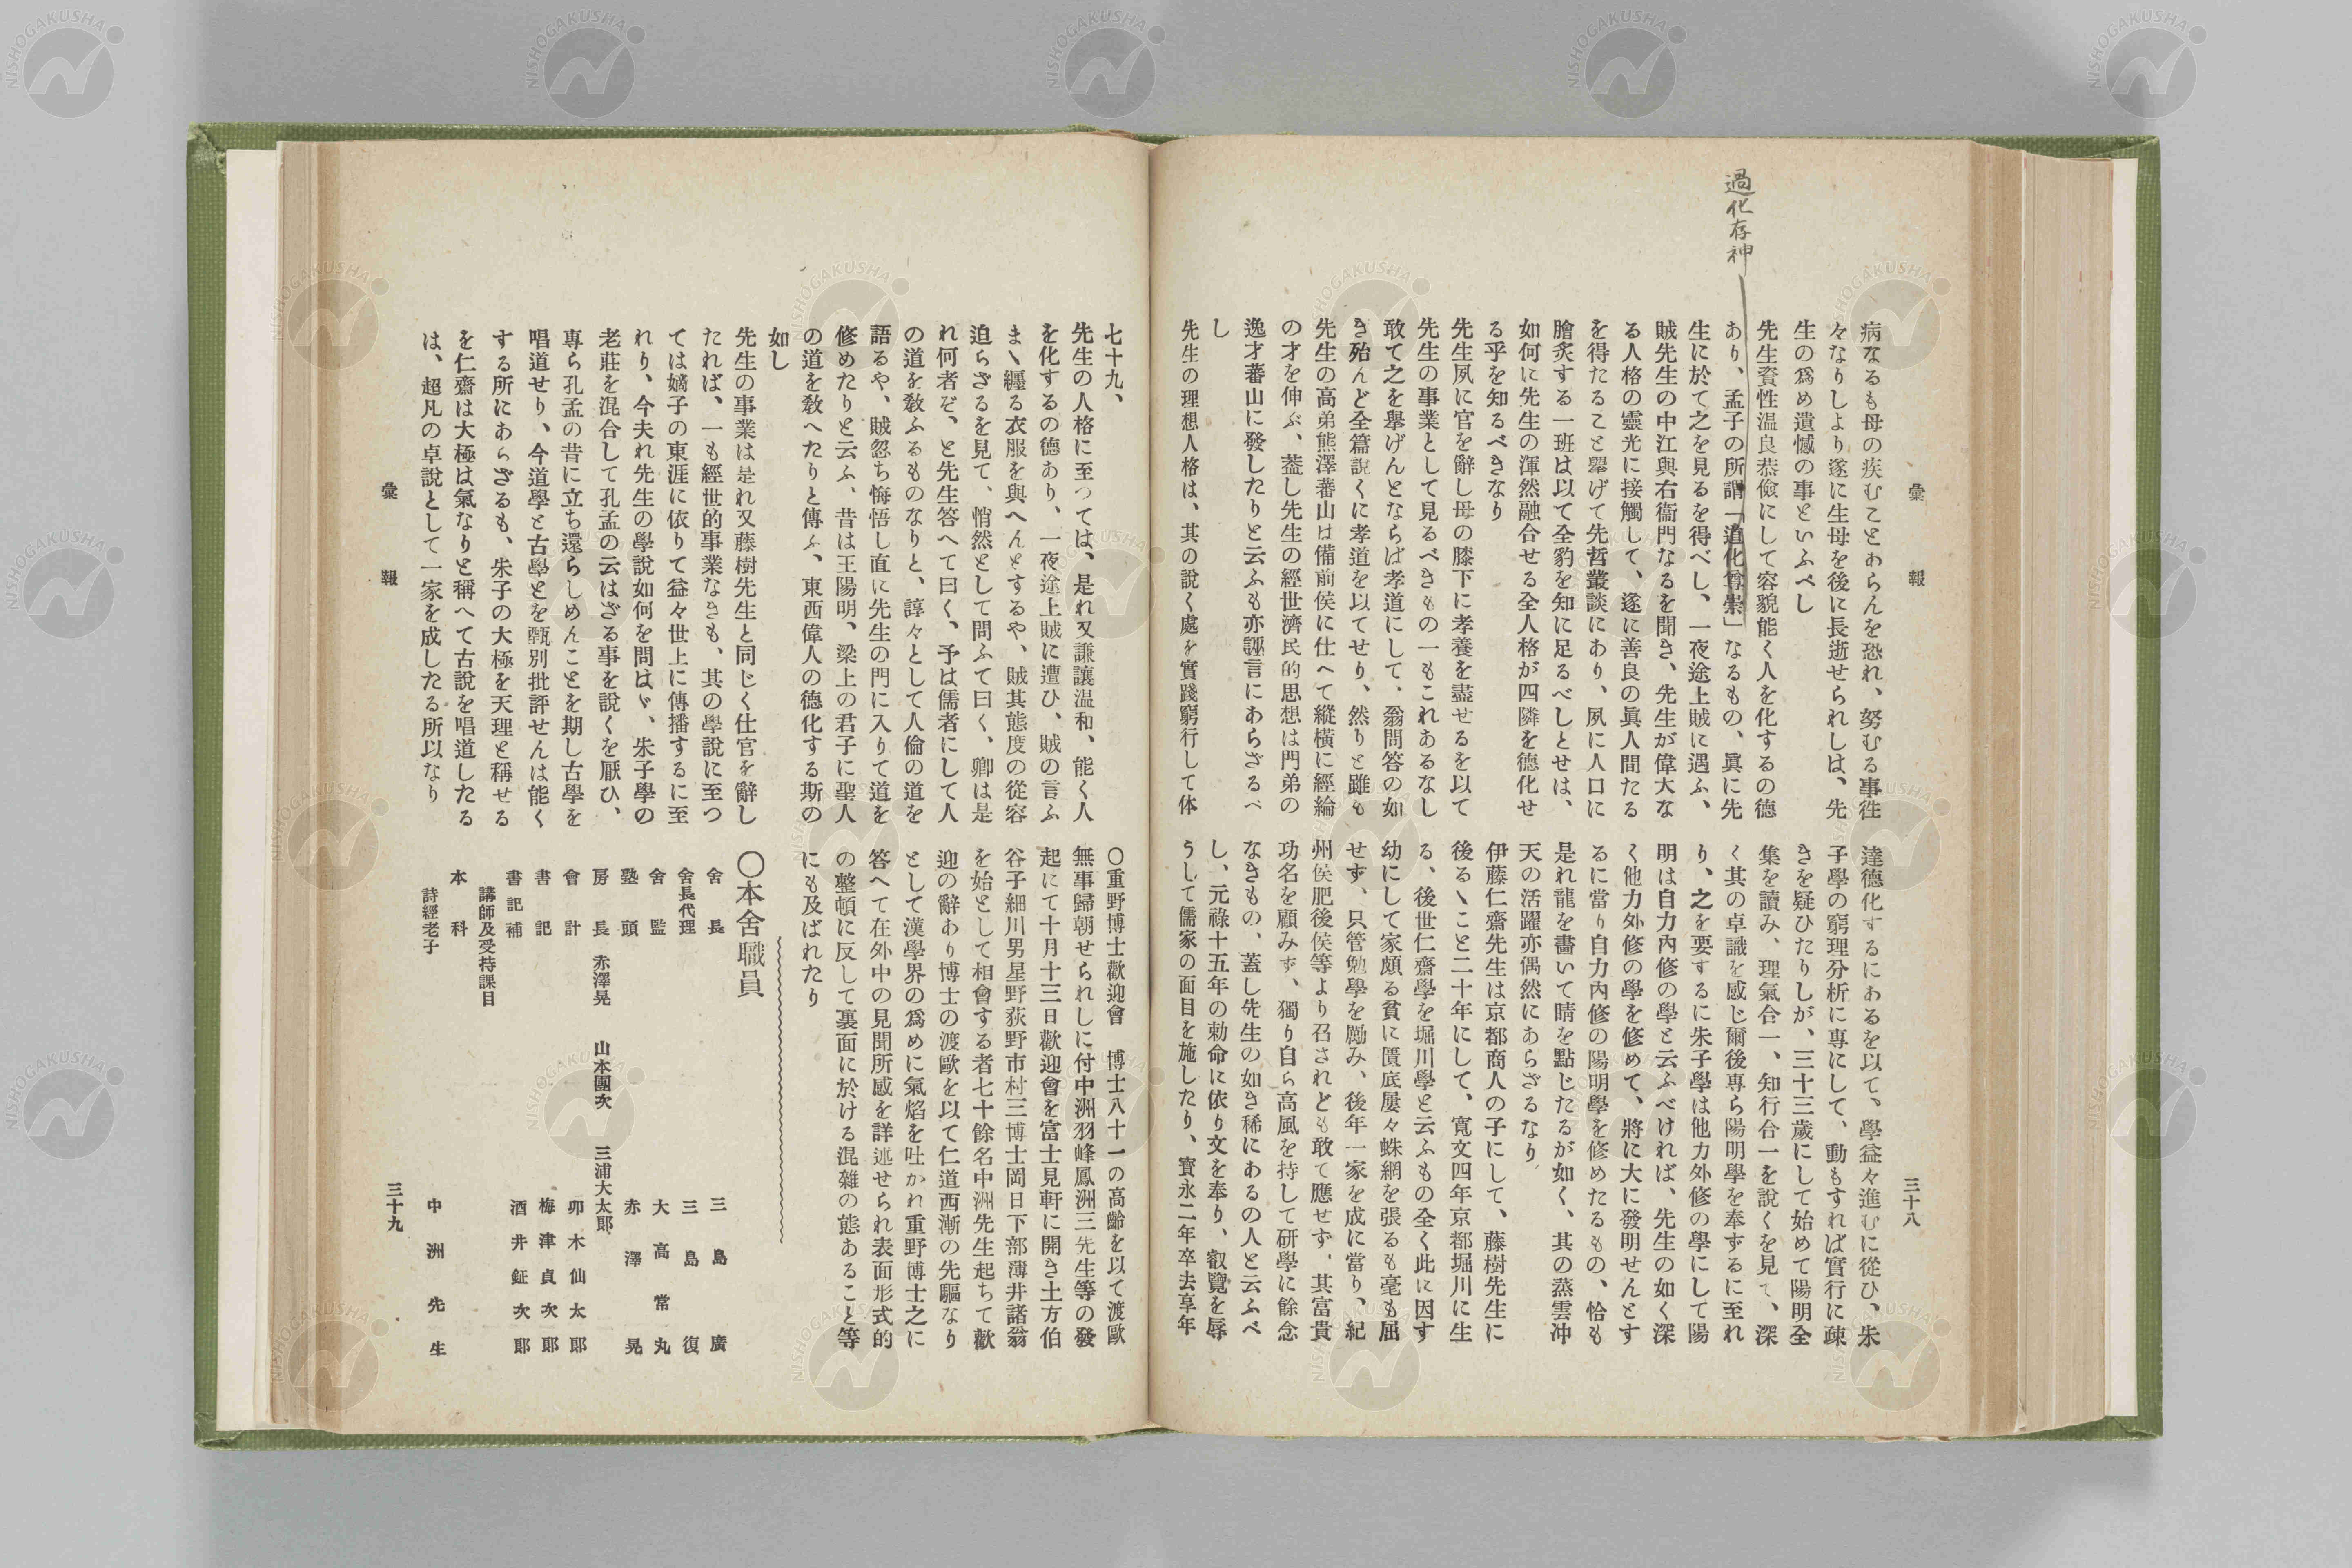 過化存神
彙報
三十八
病なるも母の疾むことあらんを恐れ、努むる事徃
々なりしより遂に生母を後に長逝せられしは、先
生の爲め遺憾の事といふべし
先生資性温良恭儉にして容貌能く人を化するの德
あり、孟子の所謂「道化尊崇」なるもの、眞に先
生に於て之を見るを得べし、一夜途上賊に遇ふ、
賊先生の中江與右衞門なるを聞き、先生が偉大な
る人格の靈光に接觸して、遂に善良の眞人間たる
を得たること擧げて先哲叢談にあり、夙に人口に
膾炙する一班は以て全豹を知に足るべしとせは、
如何に先生の渾然融合せる全人格が四隣を德化せ
る乎を知るべきなり
先生夙に官を辭し母の膝下に孝養を盡せるを以て
先生の事業として見るべきもの一もこれあるなし
敢て之を擧げんとならば孝道にして、翁問答の如
き殆んど全篇說くに孝道を以てせり、然りと雖も
先生の高弟熊澤蕃山は備前侯に仕へて縱橫に經綸
の才を伸ぶ、葢し先生の經世濟民的思想は門弟の
逸才蕃山に發したりと云ふも亦誣言にあらざるべ
し
先生の理想人格は、其の說く處を實踐窮行して体
達德化するにあるを以て、學益々進むに從ひ、朱
子學の窮理分析に專にして、動もすれば實行に疎
きを疑ひたりしが、三十三歲にして始めて陽明全
集を讀み、理氣合一、知行合一を說くを見て、深
く其の卓識を感じ爾後專ら陽明學を奉ずるに至れ
り、之を要するに朱子學は他力外修の學にして陽
明は自力內修の學と云ふべければ、先生の如く深
く他力外修の學を修めて、將に大に發明せんとす
るに當り自力內修の陽明學を修めたるもの、恰も
是れ龍を畵いて睛を點じたるが如く、其の蒸雲冲
天の活躍亦偶然にあらざるなり
伊藤仁齋先生は京都商人の子にして、藤樹先生に
後るゝこと二十年にして、寬文四年京都堀川に生
る、後世仁齋學を堀川學と云ふもの全く此に因す
幼にして家頗る貧に匱底屢々蛛網を張るも毫も屈
せず、只管勉學を勵み、後年一家を成に當り、紀
州侯肥後侯等より召されども敢て應せず、其富貴
功名を顧みず、獨り自ら高風を持して研學に餘念
なきもの、蓋し先生の如き稀にあるの人と云ふべ
し、元祿十五年の勅命に依り文を奉り、叡覽を辱
うして儒家の面目を施したり、寳永二年卒去享年
七十九、
先生の人格に至つては、是れ又謙讓温和、能く人
を化するの德あり、一夜途上賊に遭ひ、賊の言ふ
まゝ纒る衣服を與へんとするや、賊其態度の從容
迫らざるを見て、悄然として問ふて曰く、卿は是
れ何者ぞ、と先生答へて曰く、予は儒者にして人
の道を敎ふるものなりと、諄々として人倫の道を
語るや、賊忽ち悔悟し直に先生の門に入りて道を
修めたりと云ふ、昔は王陽明、梁上の君子に聖人
の道を敎へたりと傳ふ、東西偉人の德化する斯の
如し
先生の事業は是れ又藤樹先生と同じく仕官を辭し
たれば、一も經世的事業なきも、其の學說に至つ
ては嫡子の東涯に依りて益々世上に傳播するに至
れり、今夫れ先生の學說如何を問はゞ、朱子學の
老莊を混合して孔孟の云はざる事を說くを厭ひ、
專ら孔孟の昔に立ち還らしめんことを期し古學を
唱道せり、今道學と古學とを甄別批評せんは能く
する所にあらざるも、朱子の大極を天理と稱せる
を仁齋は大極は氣なりと稱へて古說を唱道したる
は、超凡の卓說として一家を成したる所以なり
〇重野博士歡迎會　博士八十一の高齡を以て渡歐
無事歸朝せられしに付中洲羽峰鳳洲三先生等の發
起にて十月十三日歡迎會を富士見軒に開き土方伯
谷子細川男星野荻野市村三博士岡日下部薄井諸翁
を始として相會する者七十餘名中洲先生起ちて歡
迎の辭あり博士の渡歐を以て仁道西漸の先驅なり
として漢學界の爲めに氣焰を吐かれ重野博士之に
答へて在外中の見聞所感を詳述せられ表面形式的
の整頓に反して裏面に於ける混雜の態あること等
にも及ばれたり
〇本舍職員
舍長　三島廣
舍長代理　三島復
舍監　大高常丸
塾頭　赤澤晃
房長　赤澤晃　山本團次　三浦大太郞
會計　卯木仙太郞
書記　梅津貞次郞
書記補　酒井鉦次郞
講師及受持課目
本科
詩經老子　中洲先生
彙報
三十九